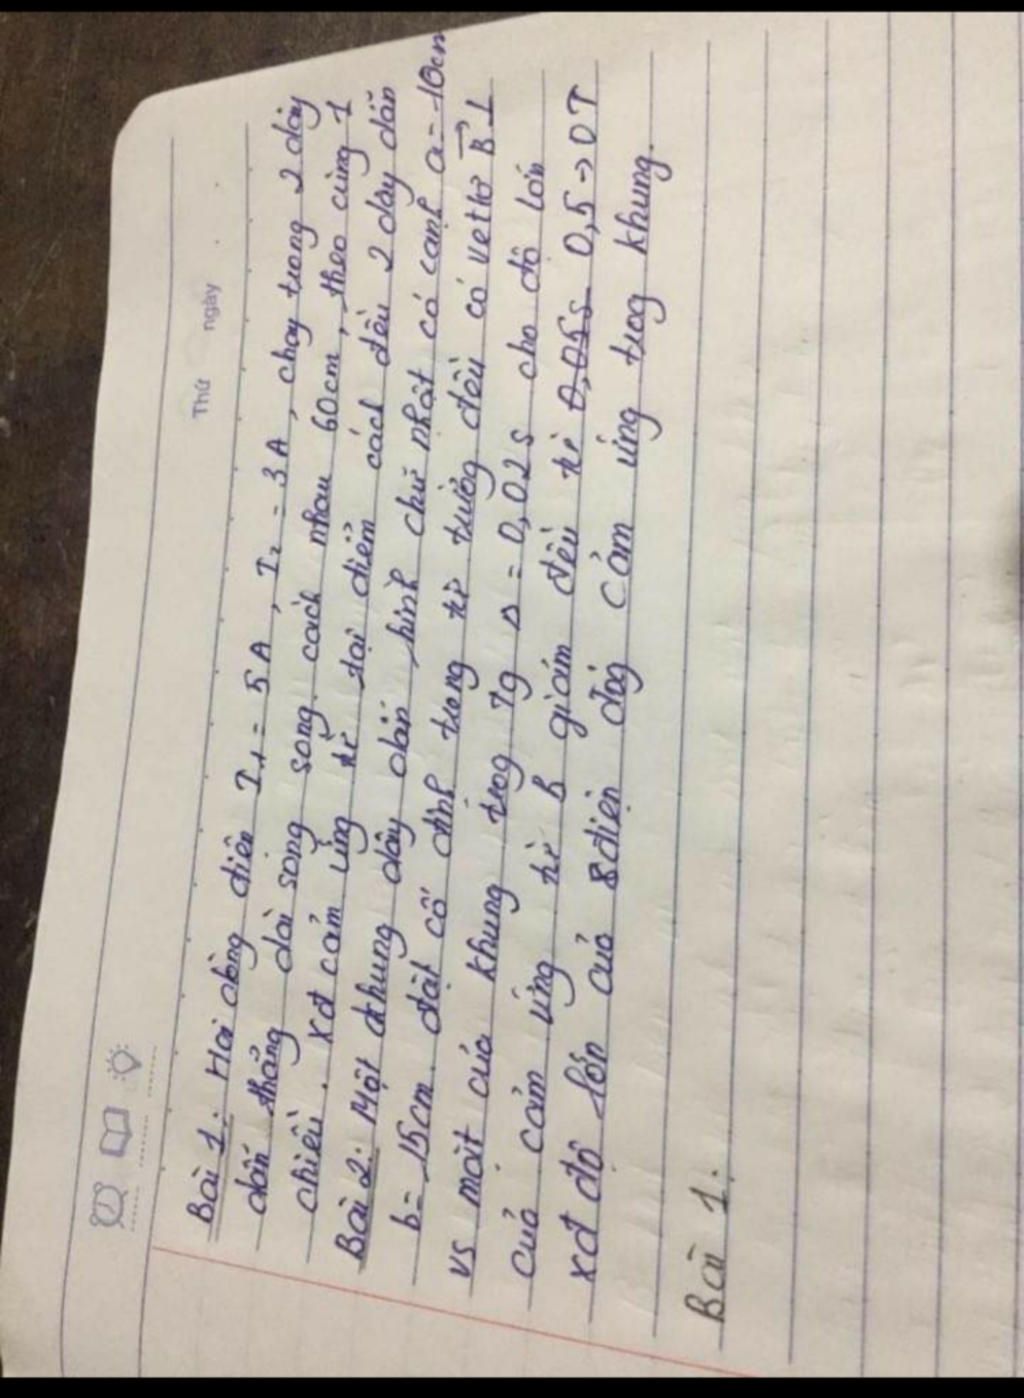 Thứ ngày
Bài 1: Hai dòng điện I₁ = 5A, I₂ = 3A, chạy trong 2 dây
dẫn thẳng dài song song cách nhau 60cm, theo cùng 1
chiều. Xđ cảm ứng từ tại điểm cách đều 2 dây dẫn
Bài 2: Một khung dây dẫn hình chữ nhật có cạnh a = 10cm
b = 15cm. đặt cố định trong từ trường đều có vectơ B⃗ ⊥
vs mặt của khung trog tg Δ = 0,02s cho độ lớn
của cảm ứng từ B giảm đều từ 0,05s 0,5 → 0T
xđ độ lớn của sđiện độg cảm ứng trog khung.
Bài 1: